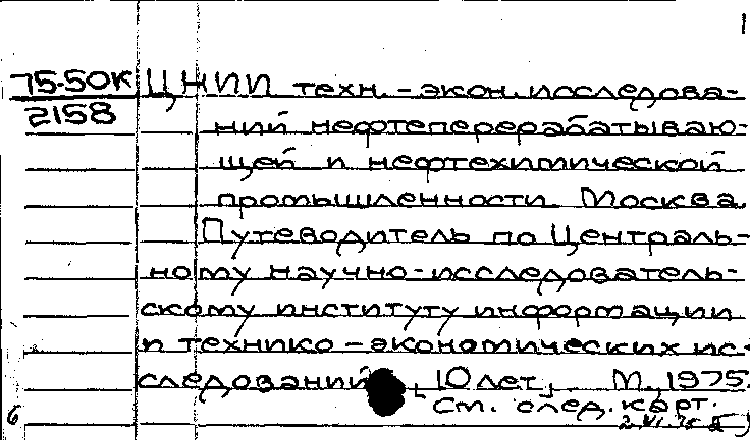 1
75-50К ЦНИИ техн.-экон. исследова-
2158 ний нефтеперерабатываю-
щей и нефтехимической
промышленности. Москва.
Путеводитель по Централь-
ному научно-исследователь-
скому институту информации
и технико-экономических ис-
следований. [10 лет]. М., 1975.
См. след. карт.
6